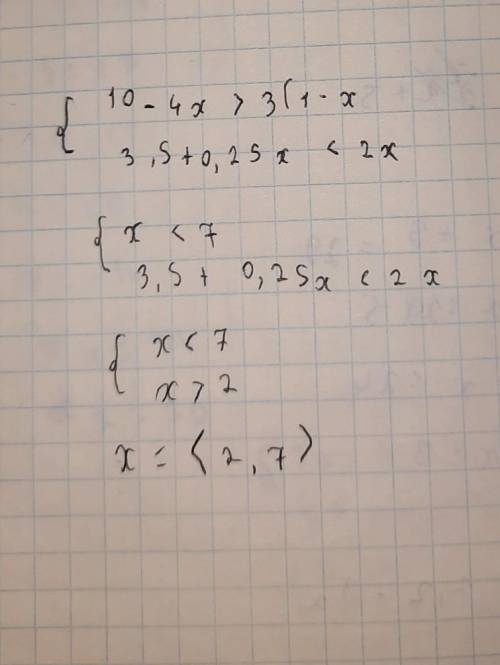 { 10 - 4x > 3(1 - x
3,5 + 0,25x < 2x
{ x < 7
3,5 + 0,25x < 2x
{ x < 7
x > 2
x = ⟨2,7⟩